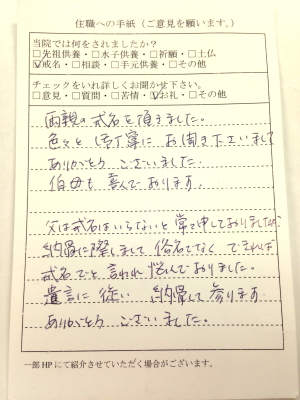 住職への手紙（ご意見を願います。）
当院では何をされましたか？
□先祖供養・□水子供養・□祈願・□土仏
☑戒名・□相談・□手元供養・□その他
チェックをいれ詳しくお聞かせ下さい。
□意見・□質問・□苦情・☑お礼・□その他
両親の戒名を頂きました。
色々と ご丁寧に お聞き下さいまして
ありがとう ございました。
伯母も 喜んで おります。
父は戒名はいらないと 常々申しておりましたが、
納骨に際しまして 俗名でなく できれば
戒名でと 言われ 悩んでおりました。
遺言に 従い 納骨して 参ります
ありがとう ございました。
一部HPにて紹介させていただく場合がございます。